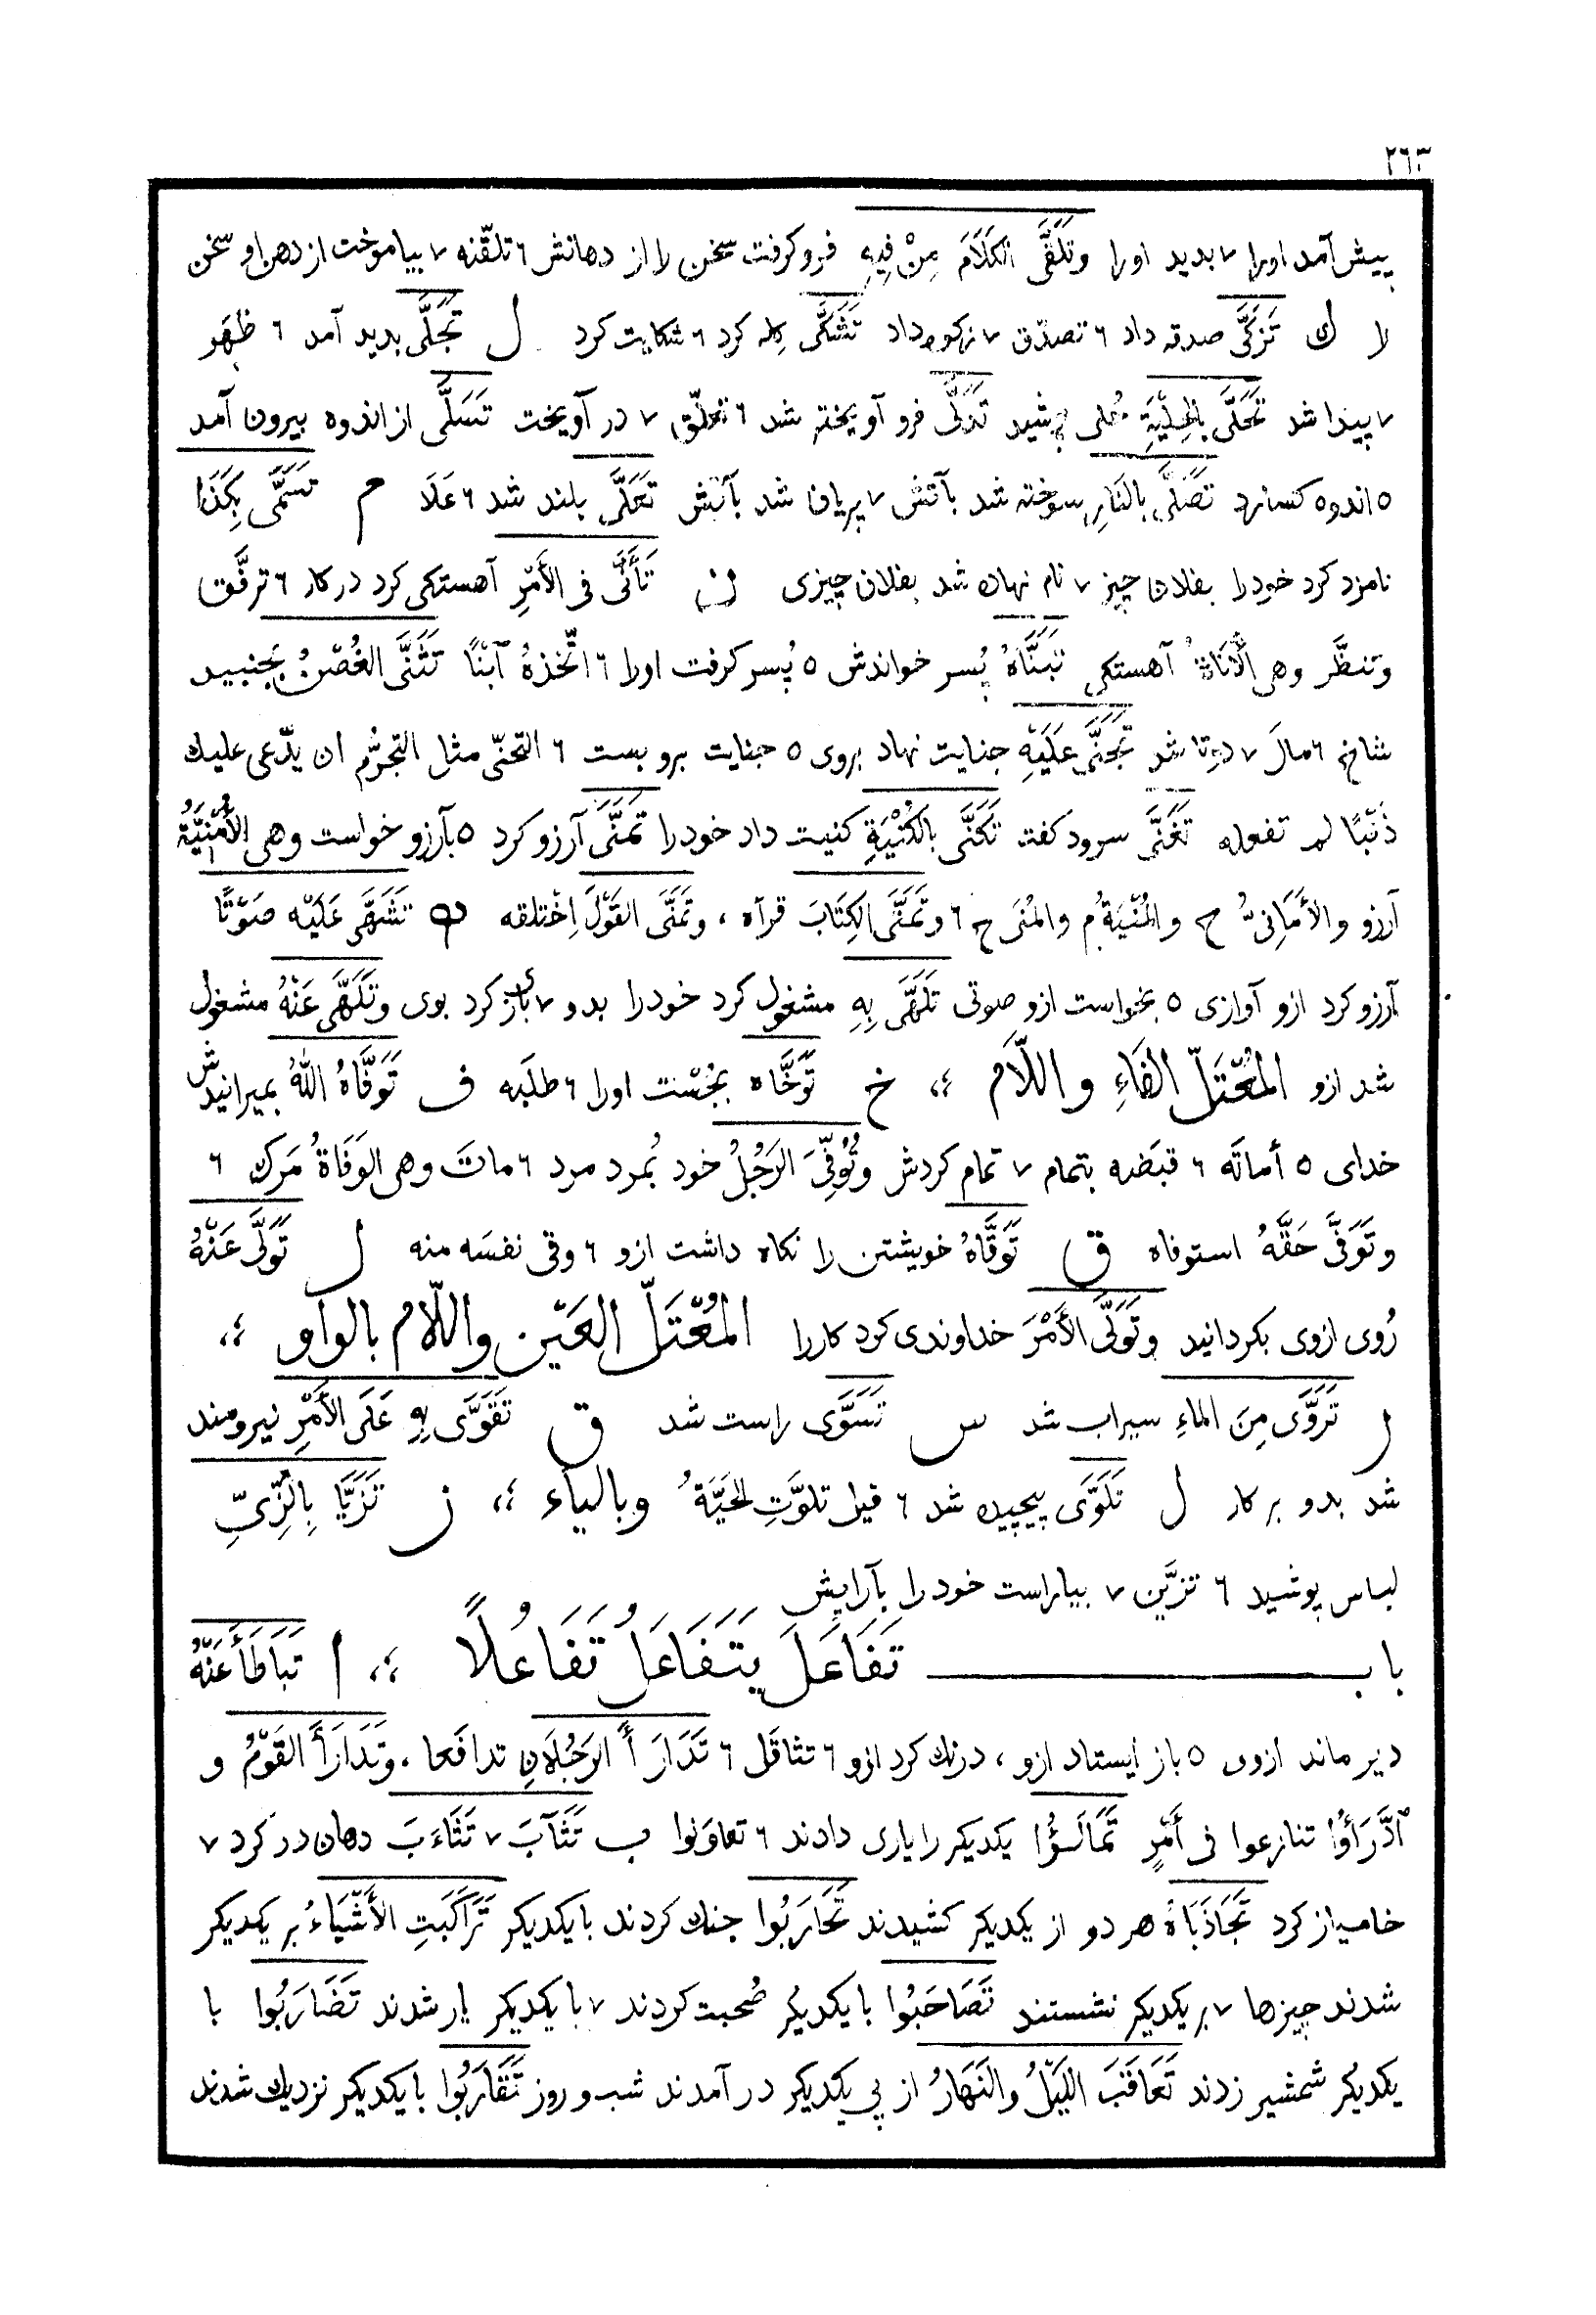 ٢٦٣
پیش آمد اورا ٧ بدید اورا وتَلَقَّى الكَلَامَ مِنْ فِيهِ فرو کرفت سخن را از دهانش ٦ تلقّنه ٧ بیاموخت از دهن او سخن
لا ك تَزَكَّى صدقه داد ٦ تصدّق ٧ زکوه داد تَشَكَّى كله کرد ٦ شکایت کرد ل تَجَلَّى بدید آمد ٦ ظهَر
٧ پیدا شد تَحَلَّى بِالحِلْيَةِ حُلی پوشید تَدَلَّى فرو آویخته شد ٦ تعلّق ٧ در آویخت تَسَلَّى از اندوه بیرون آمد
٥ اندوه کسارد تَصَلَّى بِالنَارِ سوخته شد بآتش ٧ بریان شد بآتش تَعَلَّى بلند شد ٦ عَلَا م تَسَمَّى بِكَذَا
نامزد کرد خود را بفلان چیز ٧ نام نهان شد بفلان چیزی ن تَأَنَّى فى الأَمْرِ آهستكى کرد در کار ٦ ترفَّق
وتنظَّر وهى الأَنَاةُ آهستكى تَبَنَّاهُ پُسر خواندش ٥ پُسر کرفت اورا ٦ اتّخذهُ آبْنًا تَثَنَّى الغُصْنُ بجنبید
شاخ ٦ مالَ ٧ دوتا شد تَجَنَّى عَلَيْهِ جنایت نهاد بروی ٥ جنایت برو بست ٦ التجنّى مثل التجرّم ان یدّعى علیك
ذَنْبًا لم تفعله تَغَنَّى سرود کفت تَكَنَّى بِالكُنْيَةِ کنیت داد خود را تَمَنَّى آرزو کرد ٥ بآرزو خواست وهى الأُمْنِيَّةُ
آرزو والأَمَانِىُّ ح والمُنْيَةُ م والمُنَى ح ٦ وتَمَنَّى الكِتَابَ قرآه ، وتَمَنَّى القَوْلَ اِخْتلقه ه تَشَهَّى عَلَيْهِ صَوْتًا
آرزو کرد ازو آوازی ٥ بخواست ازو صوتی تَلَهَّى بِهِ مشغول کرد خود را بدو ٧ بازی کرد بوی وتَلَهَّى عَنْهُ مشغول
شد ازو المُعْتَلّ الفَاءِ واللّاَم ؛، خ تَوَخَّاه بجُسْت اورا ٦ طلَبه ف تَوَفَّاهُ اللهُ بمیرانیدش
خدای ٥ أماتَه ٦ قبَضه بتمام ٧ تمام کردش وتُوُفِّىَ الرَجُلُ خود بُمرد مرد ٦ ماتَ وهى الوَفَاةُ مَرك ٦
وتَوَفَّى حَقَّهُ استوفاه ق تَوَقَّاهُ خویشتن را نکاه داشت ازو ٦ وقى نفسَه منه ل تَوَلَّى عَنْهُ
رُوی ازوی بکردانید وتَوَلَّى الأَمْرَ خداوندی کرد کاررا المُعْتَلّ العَيْن واللّام بالواو ؛،
ر تَرَوَّى مِنَ الماءِ سیراب شد س تَسَوَّى راست شد ق تَقَوَّى بِهِ عَلَى الأَمْرِ نیرومند
شد بدو بر کار ل تَلَوَّى پیچیده شد ٦ قیل تلوَّتِ الحَيَّةُ وبالياء ؛، ز تَزَيَّا بِالزِّىِّ
لباس پوشید ٦ تزیَّن ٧ بیاراست خود را بآرایش
باب تَفَاعَلَ يَتَفَاعَلُ تَفَاعُلًا ؛، ا تَبَاطَأَ عَنْهُ
دیر ماند ازوی ٥ باز ایستاد ازو ، درنك کرد ازو ٦ تثاقَل ٦ تَدَارَأَ الرَجُلَانِ تدافَعا ، وتَدَارَأَ القَوْمُ و
ٱدَّرَأُوا تنازعوا فى أَمْرٍ تَمَالَــؤُا یکدیکر را یاری دادند ٦ تعاوَنوا ب تَثَآبَ ٧ تَثَاءَبَ دهان در کرد ٧
خامیاز کرد تَجَاذَبَاهُ هر دو از یکدیکر کشیدند تَحَارَبُوا جنك کردند با یکدیکر تَرَاكَبَتِ الأَشْيَاءُ بر یکدیکر
شدند چیزها ٧ بر یکدیکر نشستند تَصَاحَبُوا با یکدیکر صُحبت کردند ٧ با یکدیکر یار شدند تَضَارَبُوا با
یکدیکر شمشیر زدند تَعَاقَبَ اللَيْلُ والنَهَارُ از پی یکدیکر در آمدند شب و روز تَقَارَبُوا با یکدیکر نزدیك شدند